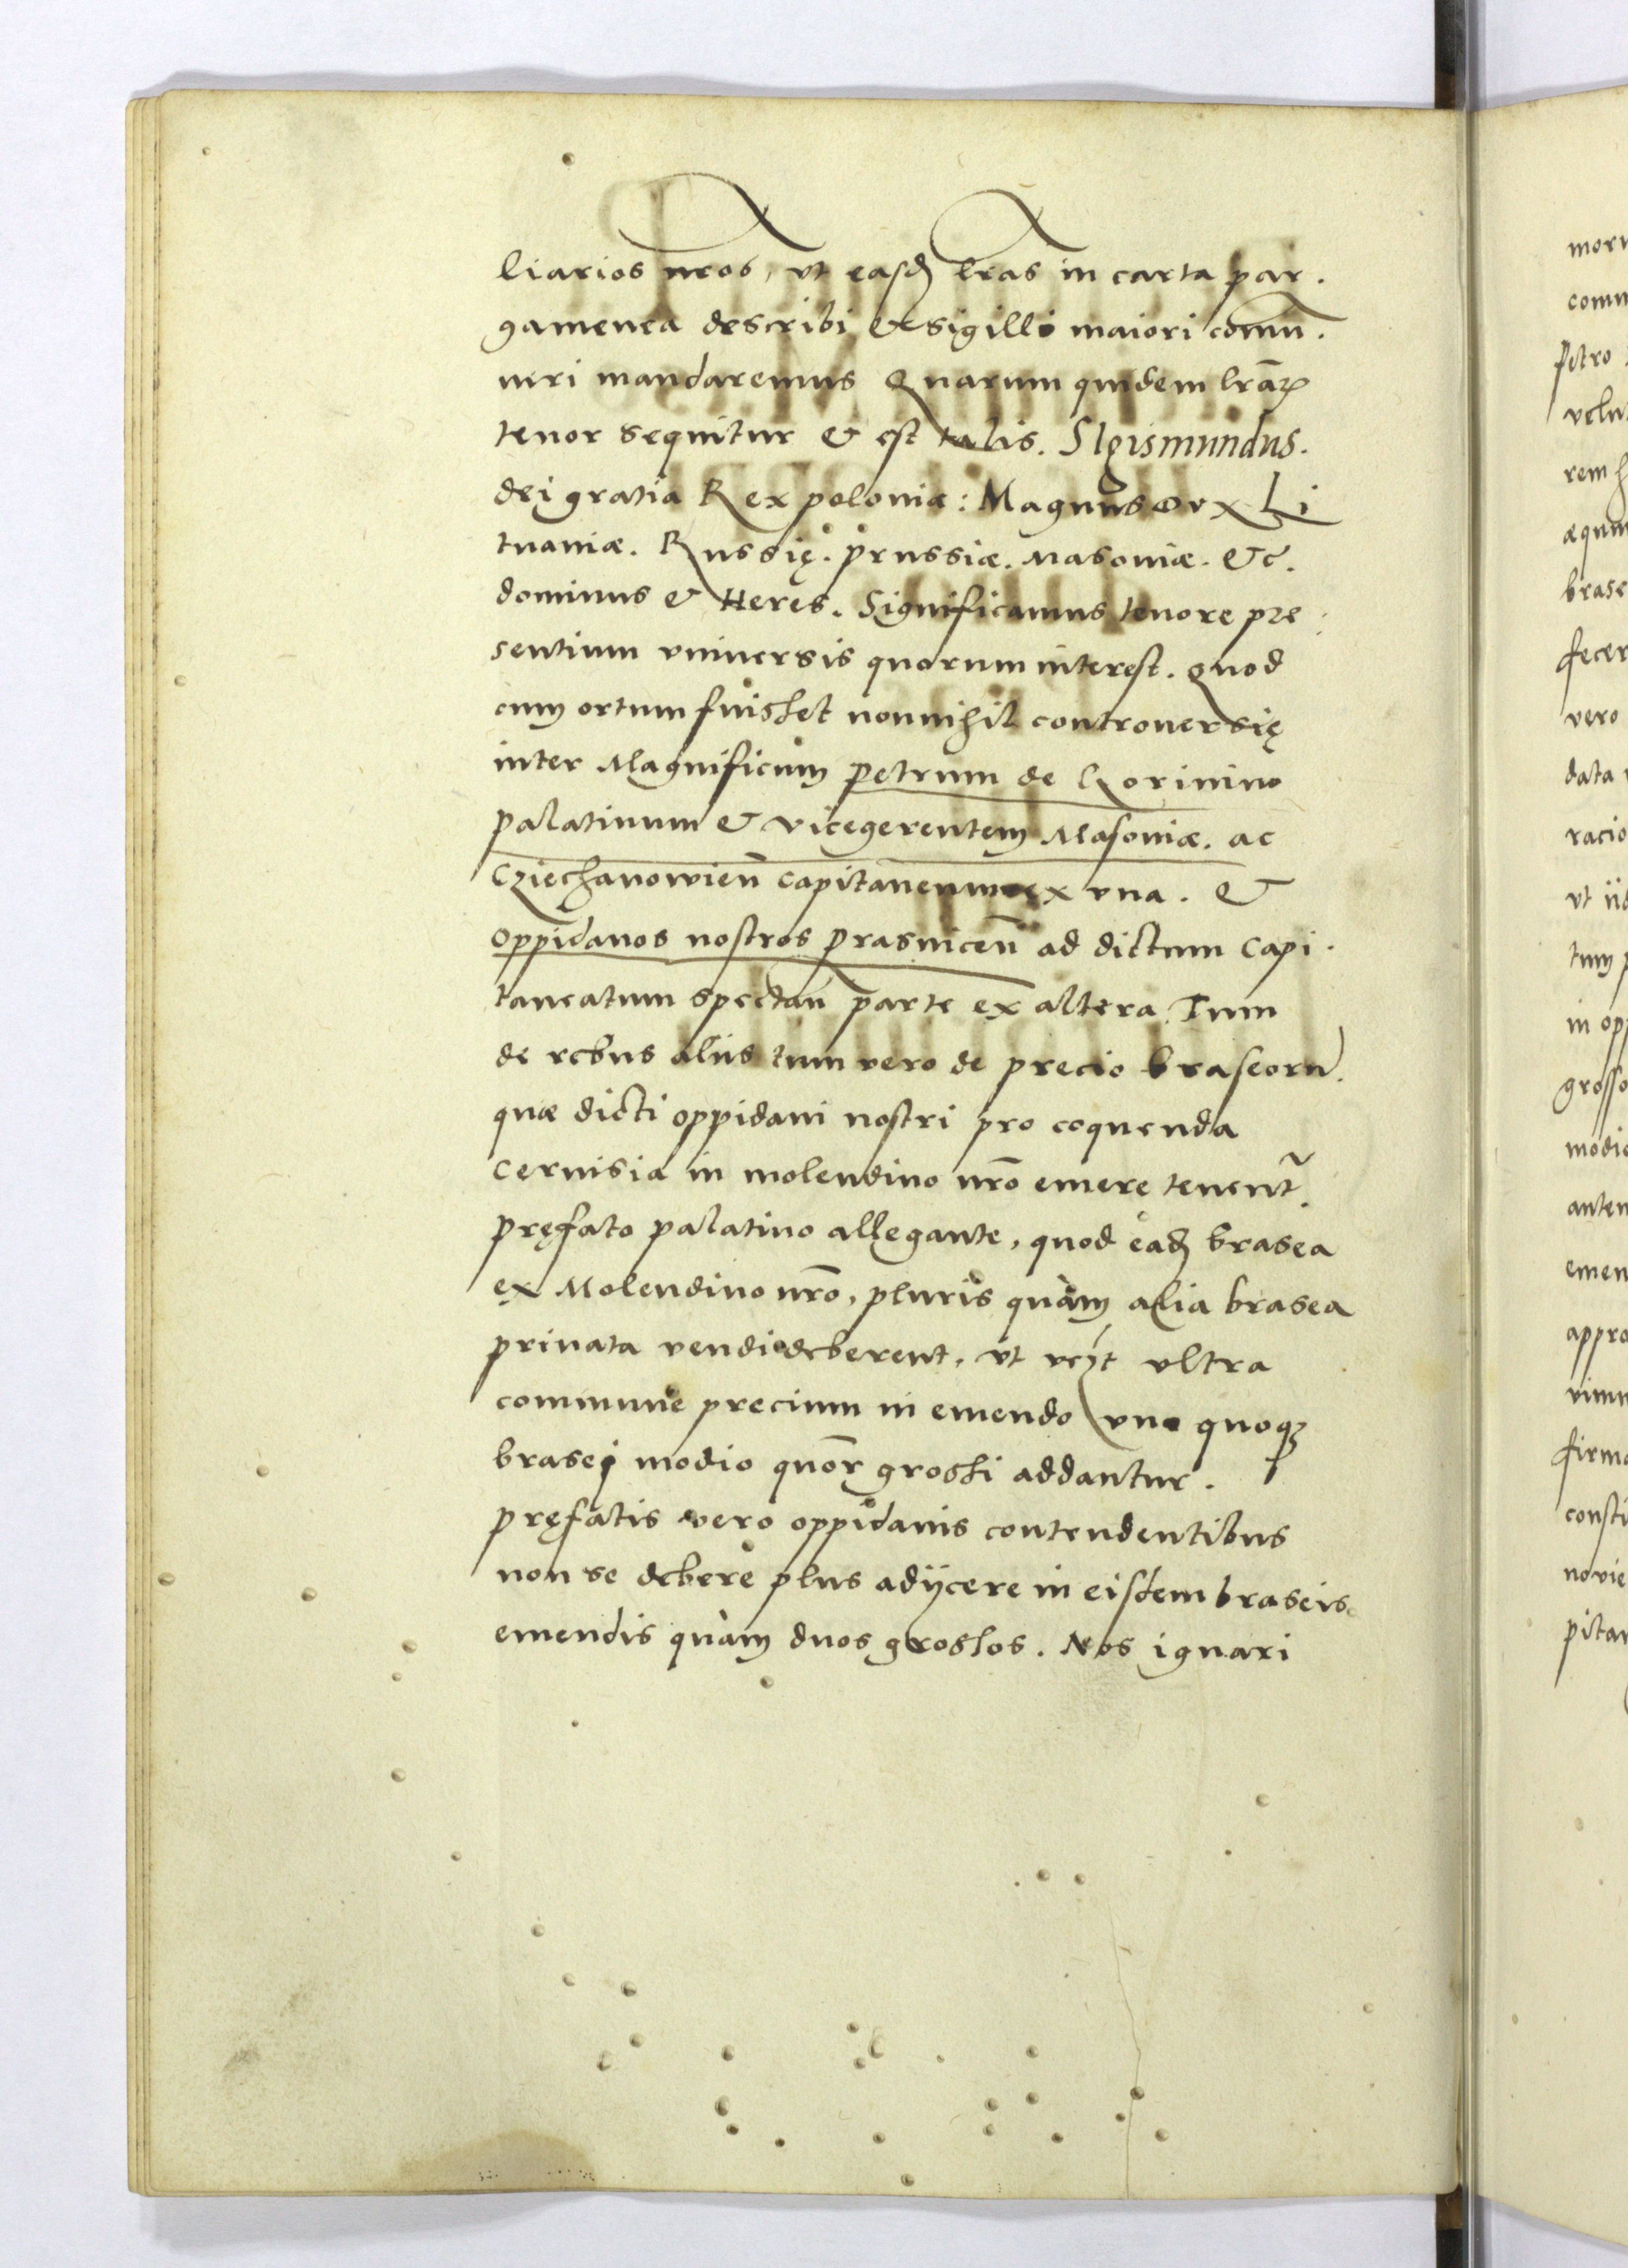 liarios nros, vt easd lras in carta par.
gamenea describi & sigillo maiori comu.
niri mandaremus Quarum quidem lrarꝝ
tenor sequitur & est talis. Sigismundus.
dei gratia Rex poloniæ: Magnus Dvx Li
tuaniæ. Russię. prussiæ. Masoniæ. &c.
dominus & Heres. Significamus tenore pre
sentium vniuersis quorum interest. Quod
cum ortum fuisset nonnihil controuersię
inter Magnificum petrum de Gorinino
palatinum & vicegerentem Masoniæ. ac
Cziechanowien̄ capitaneum ex vna. &
oppidanos nostros prasnicen̄ ad dictum Capi.
taneatum spectan̄ parte ex altera. Tum
de rebus aliis tum vero de precio braseorū.
quæ dicti oppidani nostri pro coquenda
ceruisia in molendino nrō emere tenent̃.
pręfato palatino allegante, quod eadꝫ brasea
ex Molendino nrō, pluris quàm alia brasea
priuata vendi deberent, vt ultra
commune precium in emendo vno quoqꝫ
brasei modio quor̄ grossi addantur.
pręfatis vero oppidanis contendentibus
non se debere plus adijcere in eisdem braseis
emendis quàm duos grossos. Nos ignari